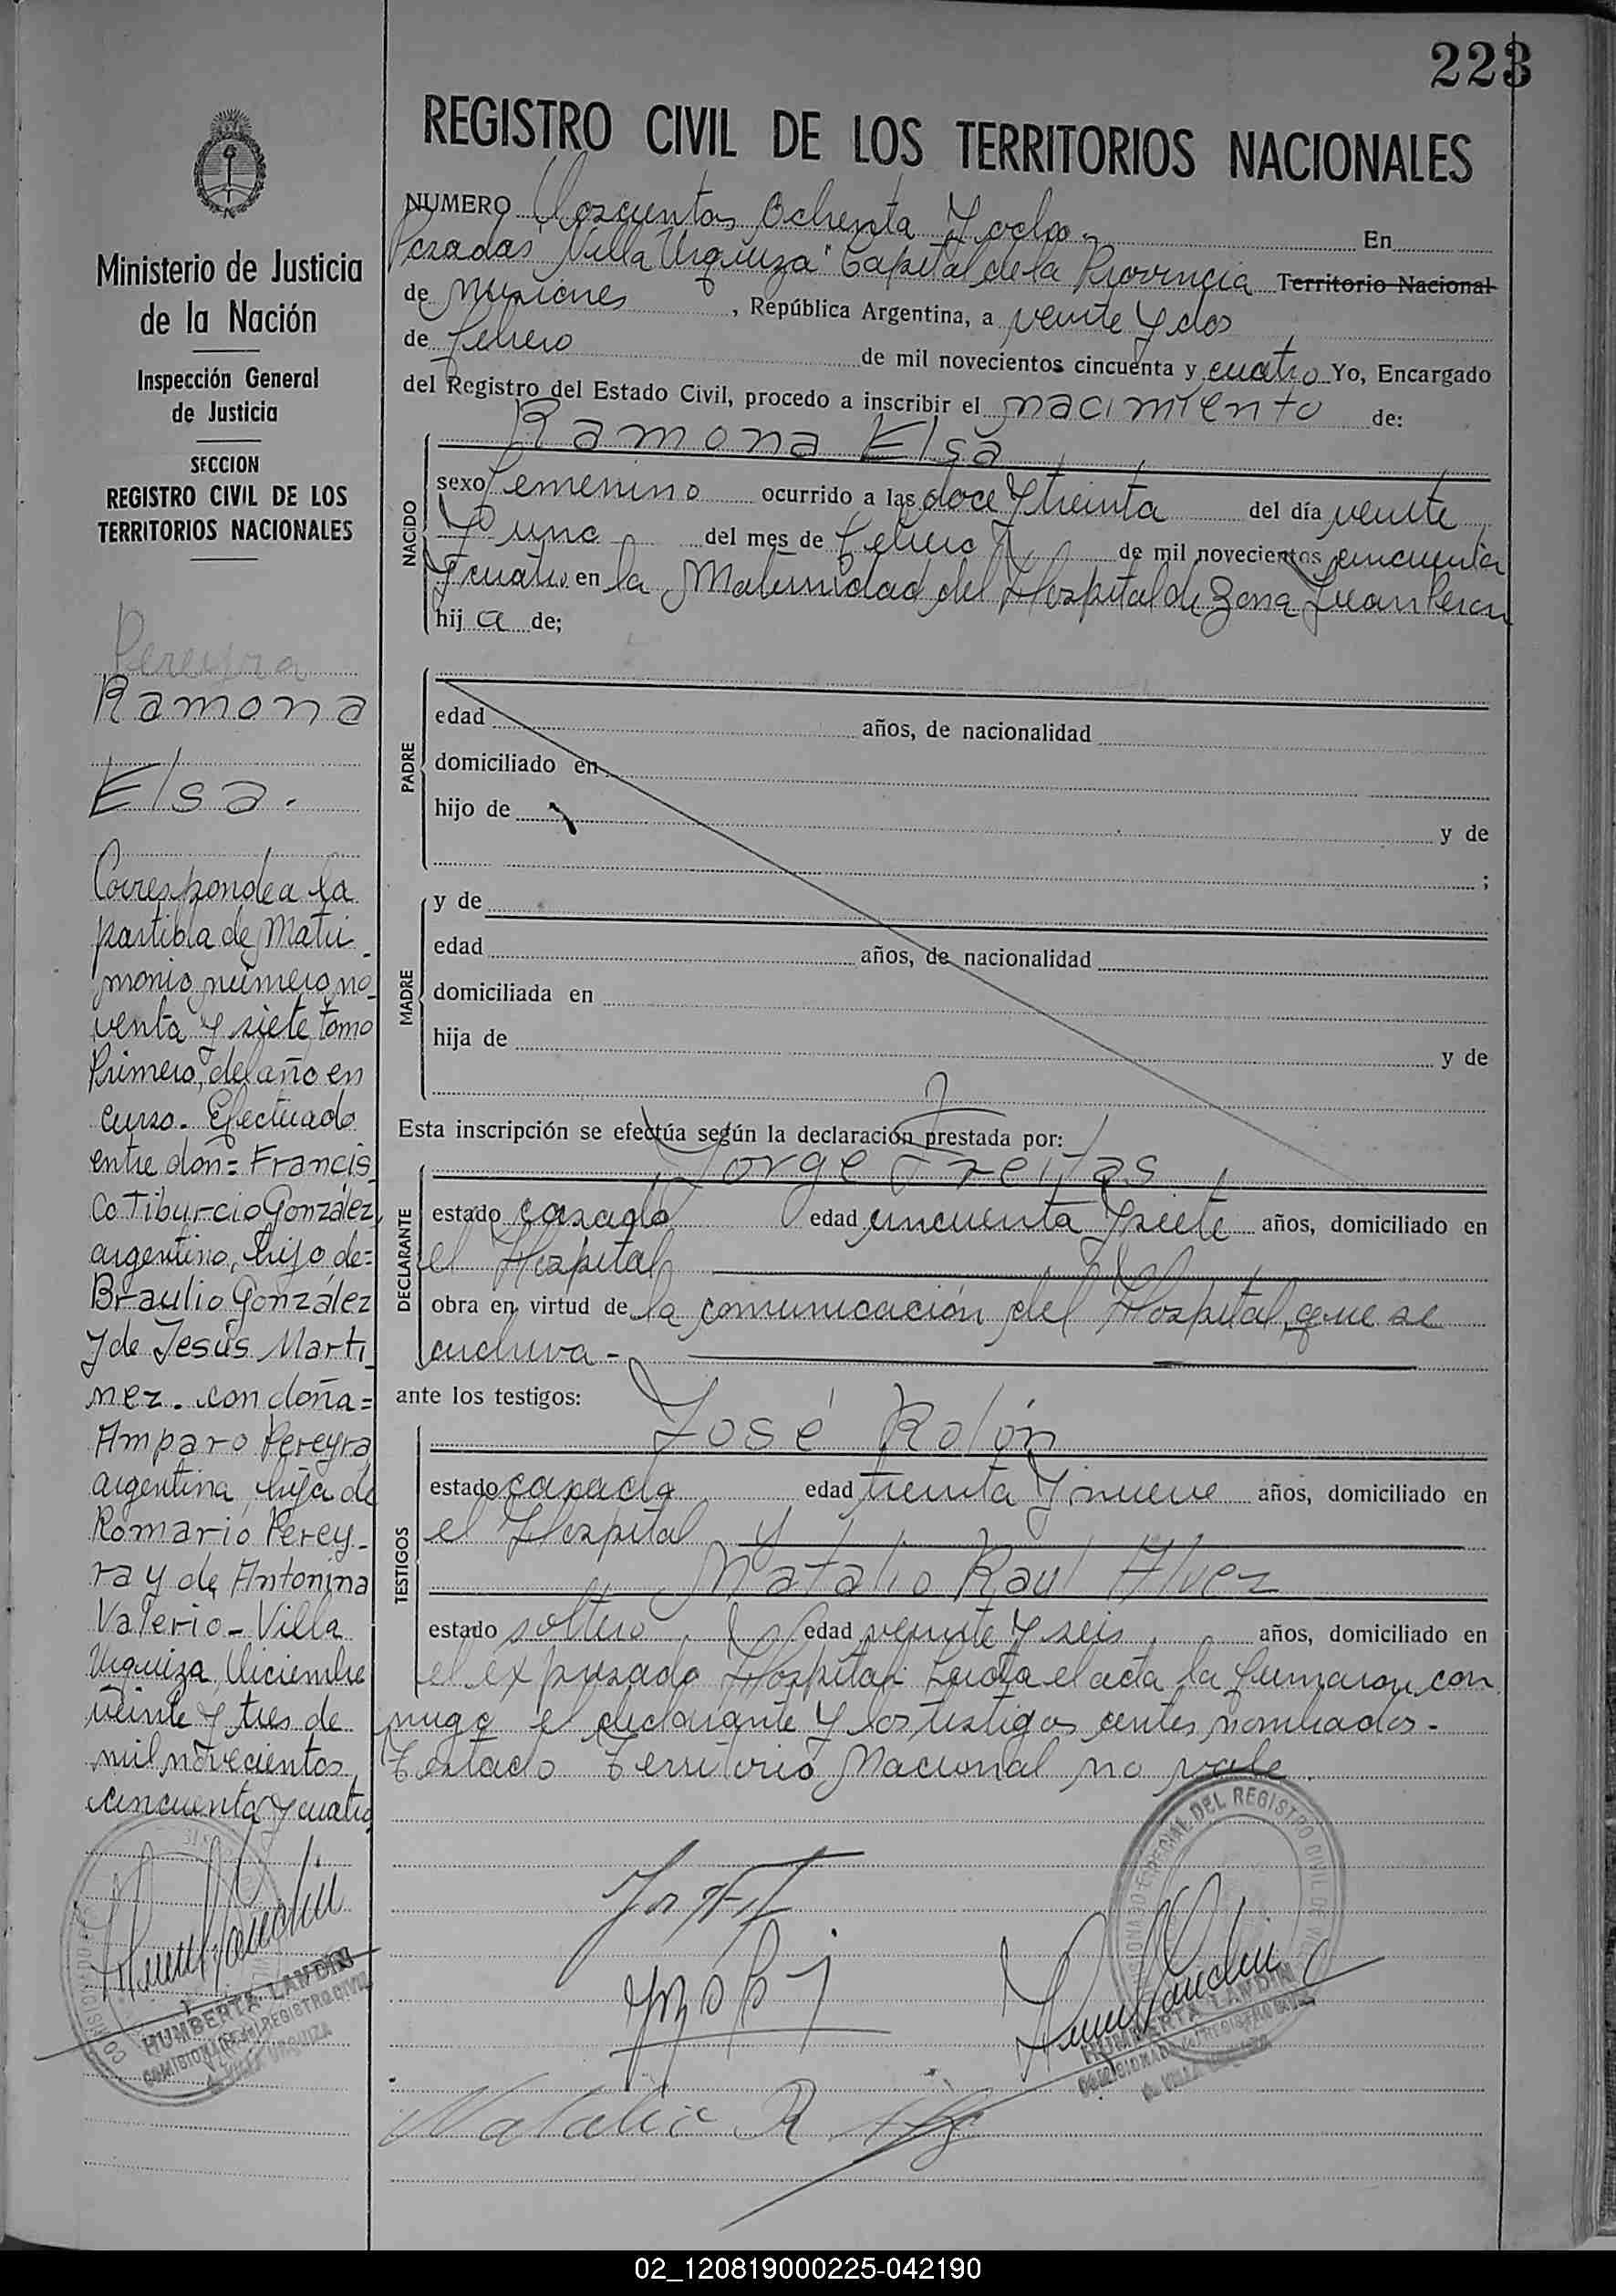 223
REGISTRO CIVIL DE LOS TERRITORIOS NACIONALES
Ministerio de Justicia
de la Nación
Inspección General
de Justicia
SECCION
REGISTRO CIVIL DE LOS
TERRITORIOS NACIONALES
Pereyra
Ramona
Elsa.
Corresponde a la
partida de Matri
monio número no_
venta y siete tomo
Primero, del año en
curso. Efectuado
entre don= Francis_
co Tiburcio González,
argentino, hijo de=
Braulio González
y de Jesús Marti_
nez. con doña=
Amparo Pereyra
argentina, hija de
Romario Perey_
ra y de Antonina
Valerio - Villa
Urquiza, Diciembre
veinte y tres de
mil novecientos
cincuenta y cuatro
HUMBERTA LANDIN
COMISIONADA del REGISTRO CIVIL
VILLA URQUIZA
NUMERO Doscientos Ochenta y ocho.- En
Posadas "Villa Urquiza" Capital de la Provincia Territorio Nacional
de Misiones, República Argentina, a veinte y dos
de febrero de mil novecientos cincuenta y cuatro Yo, Encargado
del Registro del Estado Civil, procedo a inscribir el nacimiento de:
Ramona Elsa
NACIDO
sexo femenino ocurrido a las doce y treinta del día veinte
y uno del mes de febrero de mil novecientos cincuenta
y cuatro en la Maternidad del Hospital de Zona Juan Peron
hij a de;
PADRE
edad años, de nacionalidad
domiciliado en
hijo de y de
;
MADRE
y de
edad años, de nacionalidad
domiciliada en
hija de y de
Esta inscripción se efectúa según la declaración prestada por:
Jorge Freitas
DECLARANTE
estado casado edad cincuenta y siete años, domiciliado en
el Hospital
obra en virtud de la comunicación del Hospital, que se
archiva -
ante los testigos:
José Rolón
TESTIGOS
estado casado edad treinta y nueve años, domiciliado en
el Hospital y
Natalio Raul Alvez
estado soltero edad veinte y seis años, domiciliado en
el expresado Hospital. Leída el acta la firmaron con
migo el declarante y los testigos antes nombrados.-
Testado Territorio Nacional no vale
DEL REGISTRO CIVIL DE
HUMBERTA LANDIN
COMISIONADA del REGISTRO CIVIL
Natalio R
02_120819000225-042190